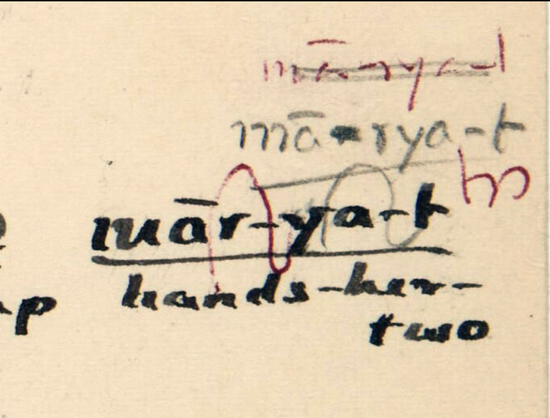 mā-rya-t
mā-rya-t
mār-ya-t
hands-her-
two